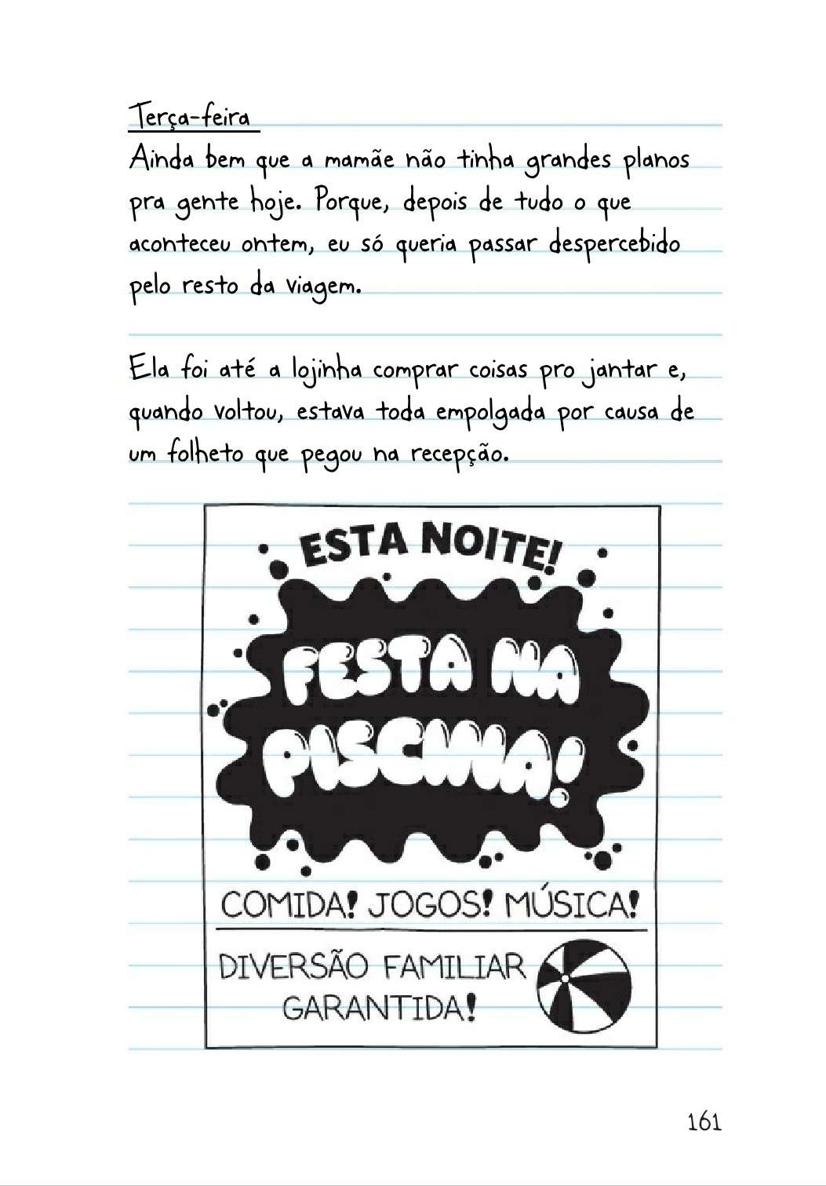 Terça-feira
Ainda bem que a mamãe não tinha grandes planos
pra gente hoje. Porque, depois de tudo o que
aconteceu ontem, eu só queria passar despercebido
pelo resto da viagem.
Ela foi até a lojinha comprar coisas pro jantar e,
quando voltou, estava toda empolgada por causa de
um folheto que pegou na recepção.
ESTA NOITE!
FESTA NA
PISCINA!
COMIDA! JOGOS! MÚSICA!
DIVERSÃO FAMILIAR
GARANTIDA!
161